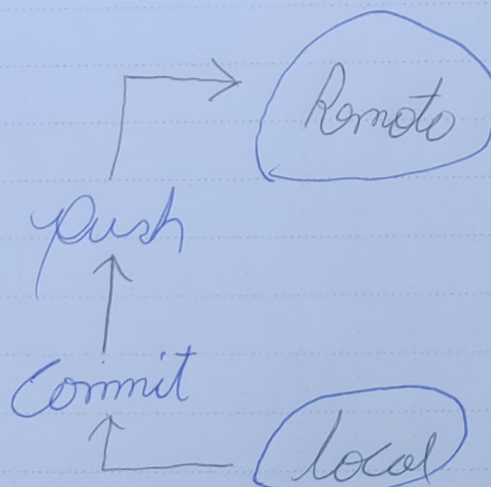 Remoto
push
Commit
local